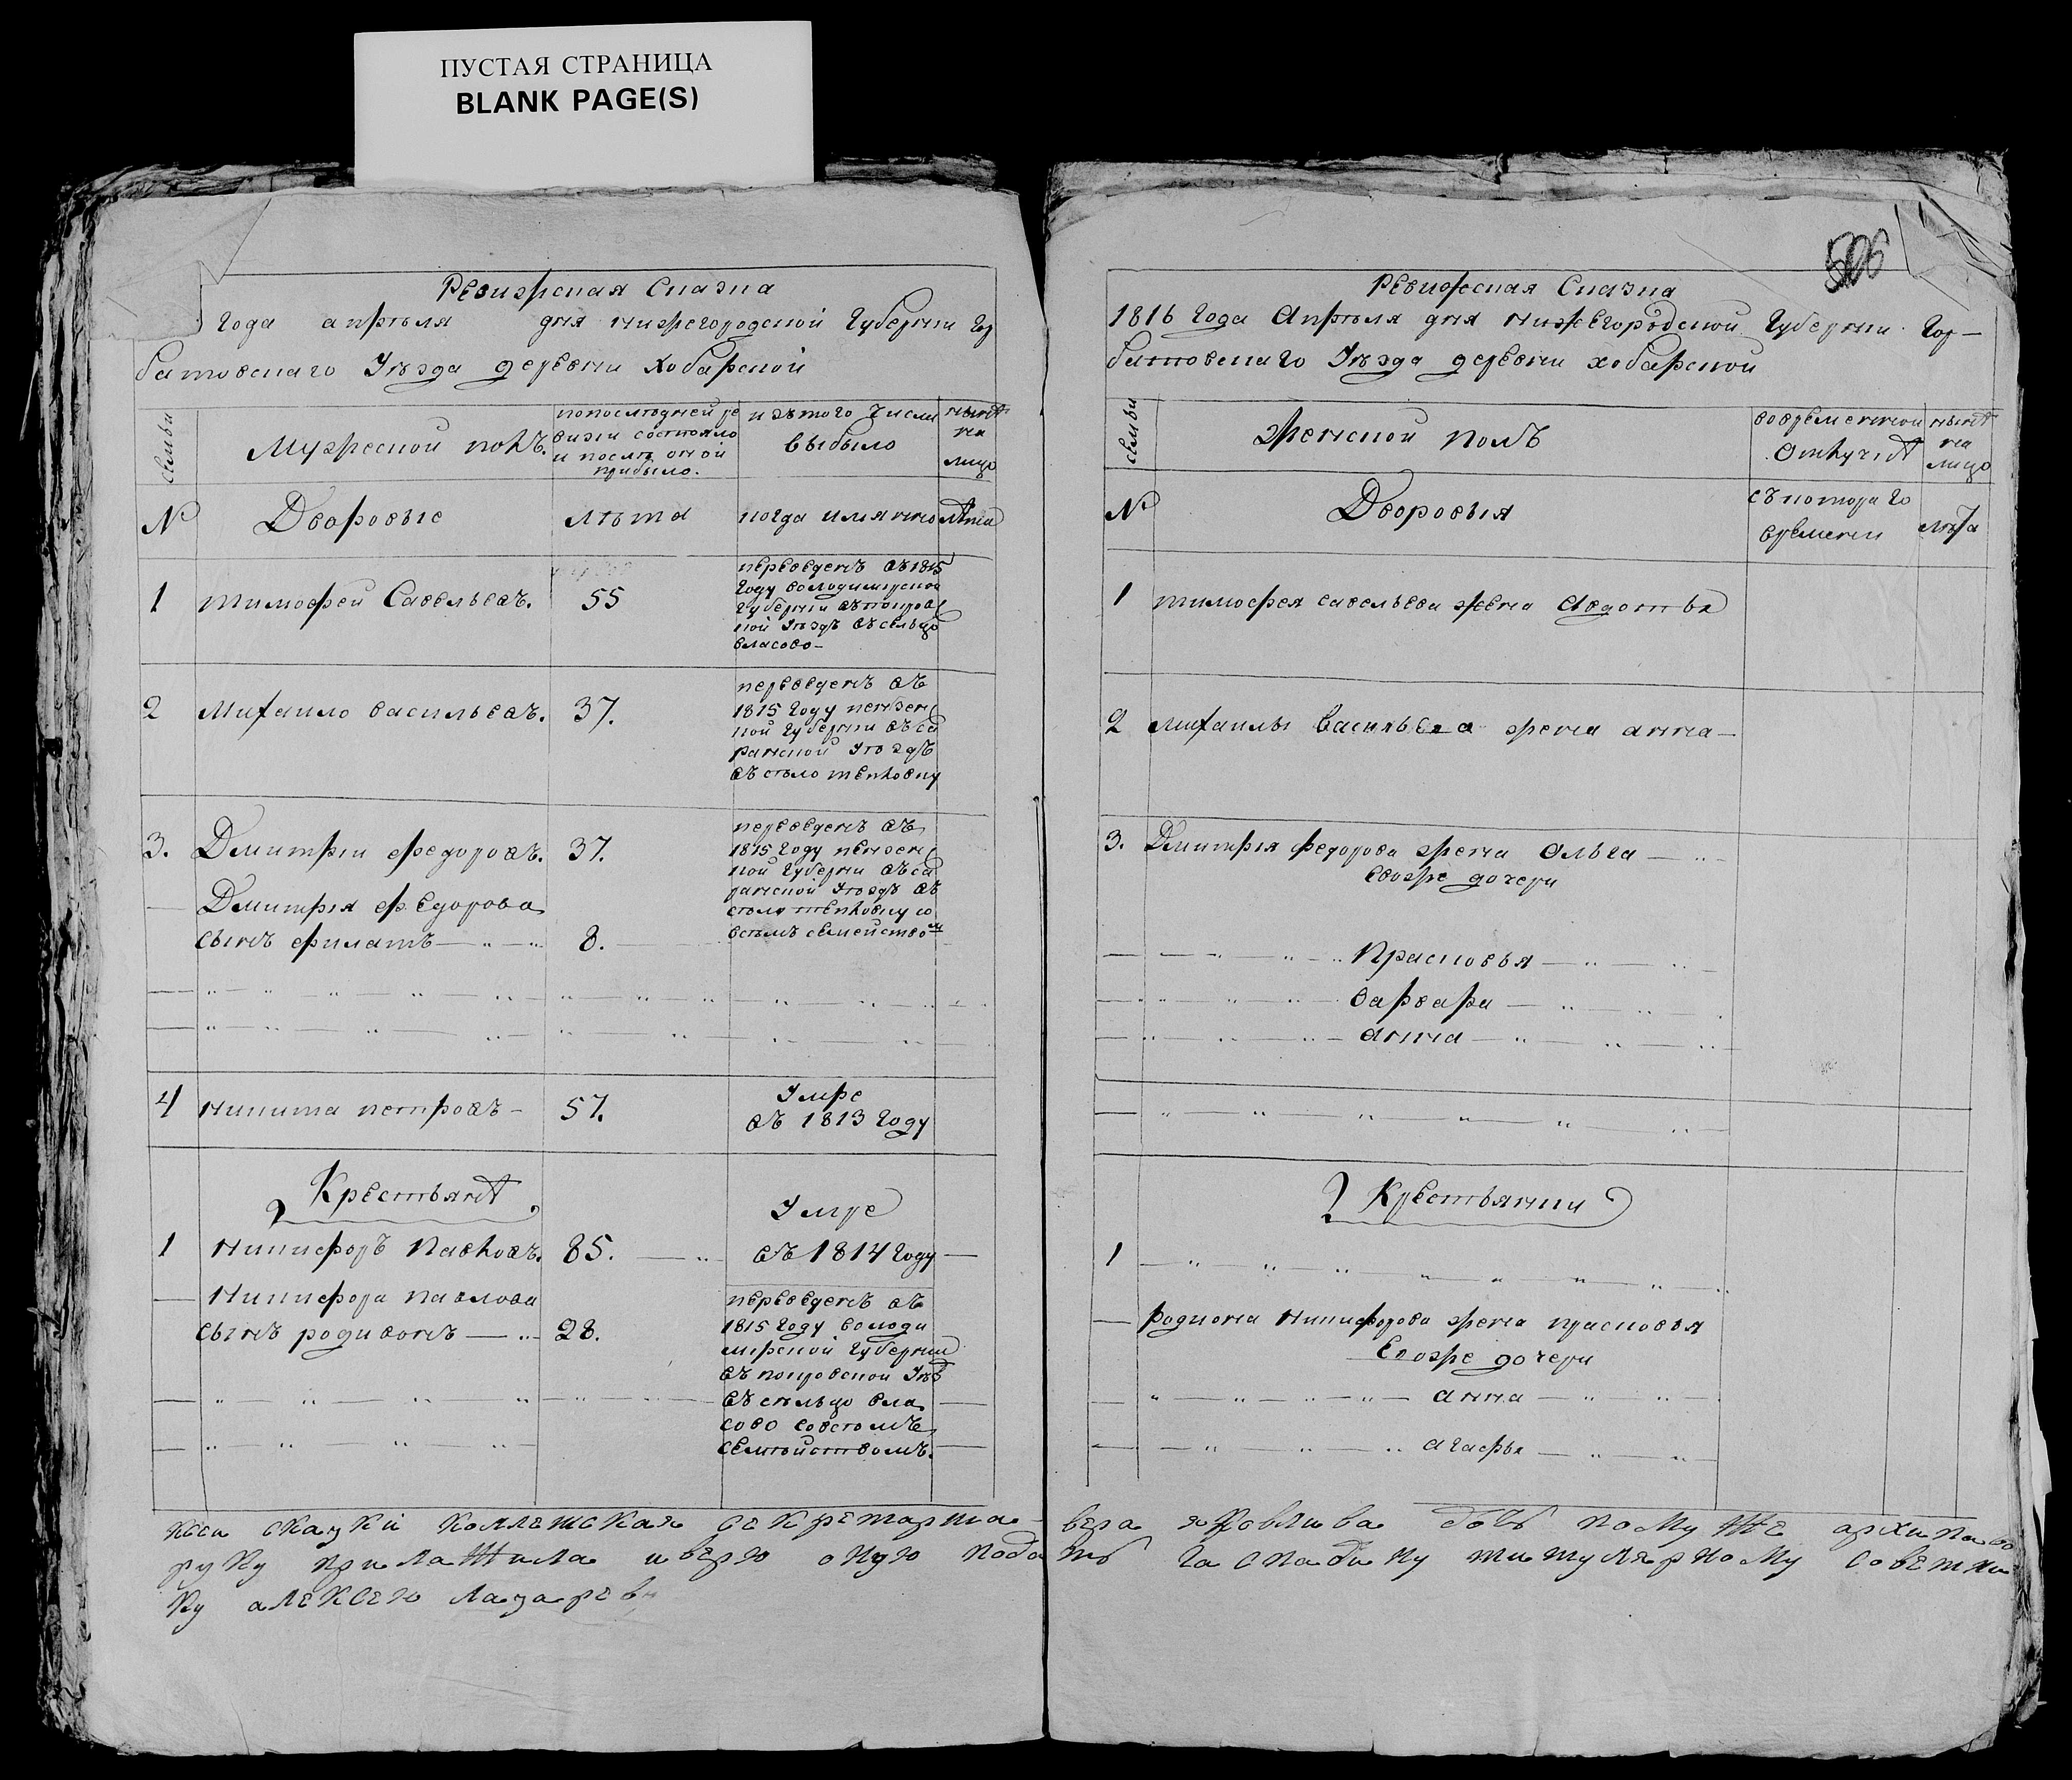 ПУСТАЯ СТРАНИЦА
BLANK PAGE(S)
Ревижская Сказка
года апрѣля дня нижегородской Губернии Гор
батовскаго Уѣзда деревни Хобарской
семьи
Мужеской полъ.
попослѣдней ре
визеи состояло
и послѣ оной
прибыло.
изътого числа
выбыло
нынѣ
на
лицо
№
Дворовые
лѣта
когда имянно
лѣта
1
тимофей Савельевъ.
55
переведенъ въ 1815
году володимирской
губернии въ покров
ской уѣздъ въ сельцо
власово-
2
Михаило васильевъ.
37.
переведенъ въ
1815 году пензен
ской губернии въ са
ранской уѣздъ
въ сѣло
3.
Дмитрии федоровъ.
37.
переведенъ въ
1815 году пензен
ской губернии въ са
ранской уѣздъ въ
сѣло со
всѣмъ семейством
Дмитрия федорова
сынъ филатъ
8.
4
никита петровъ-
57.
Умре
въ 1813 году
Крестьянѣ
1
Никифоръ Павловъ.
85.
Умре
въ 1814 году
Никифора павлова
сынъ родивонъ
28.
переведенъ въ
1815 году володи
мирской губернии
въ покровской уѣз
въ сѣльцо вла
сово совсѣмъ
семѣйствомъ.
506
Ревижская Сказка
1816 года Апрѣля дня нижегородской Губернии Гор-
батовскаго Уѣзда деревни хобарской
семьи
женской полъ
вовременной
Отлучкѣ
нынѣ
на
лицо
№
Дворовыя
съкотораго
времени
лѣта
1
тимофея савельева жена Авдотья
2
михаилы Васильева жена анна-
3.
Дмитрия федорова жена Ольга
Евоже дочери
Прасковья
варвара
анна
Крестьянки
1
родиона никифорова жена прасковья
Евоже дочери
анна
агафья
ксеи скаски коллежская секретарша вера яковлива дочь помуже архипова
руку прилажила иверю оную подать гаспадину титулярному советни
ку алексею Лазареву